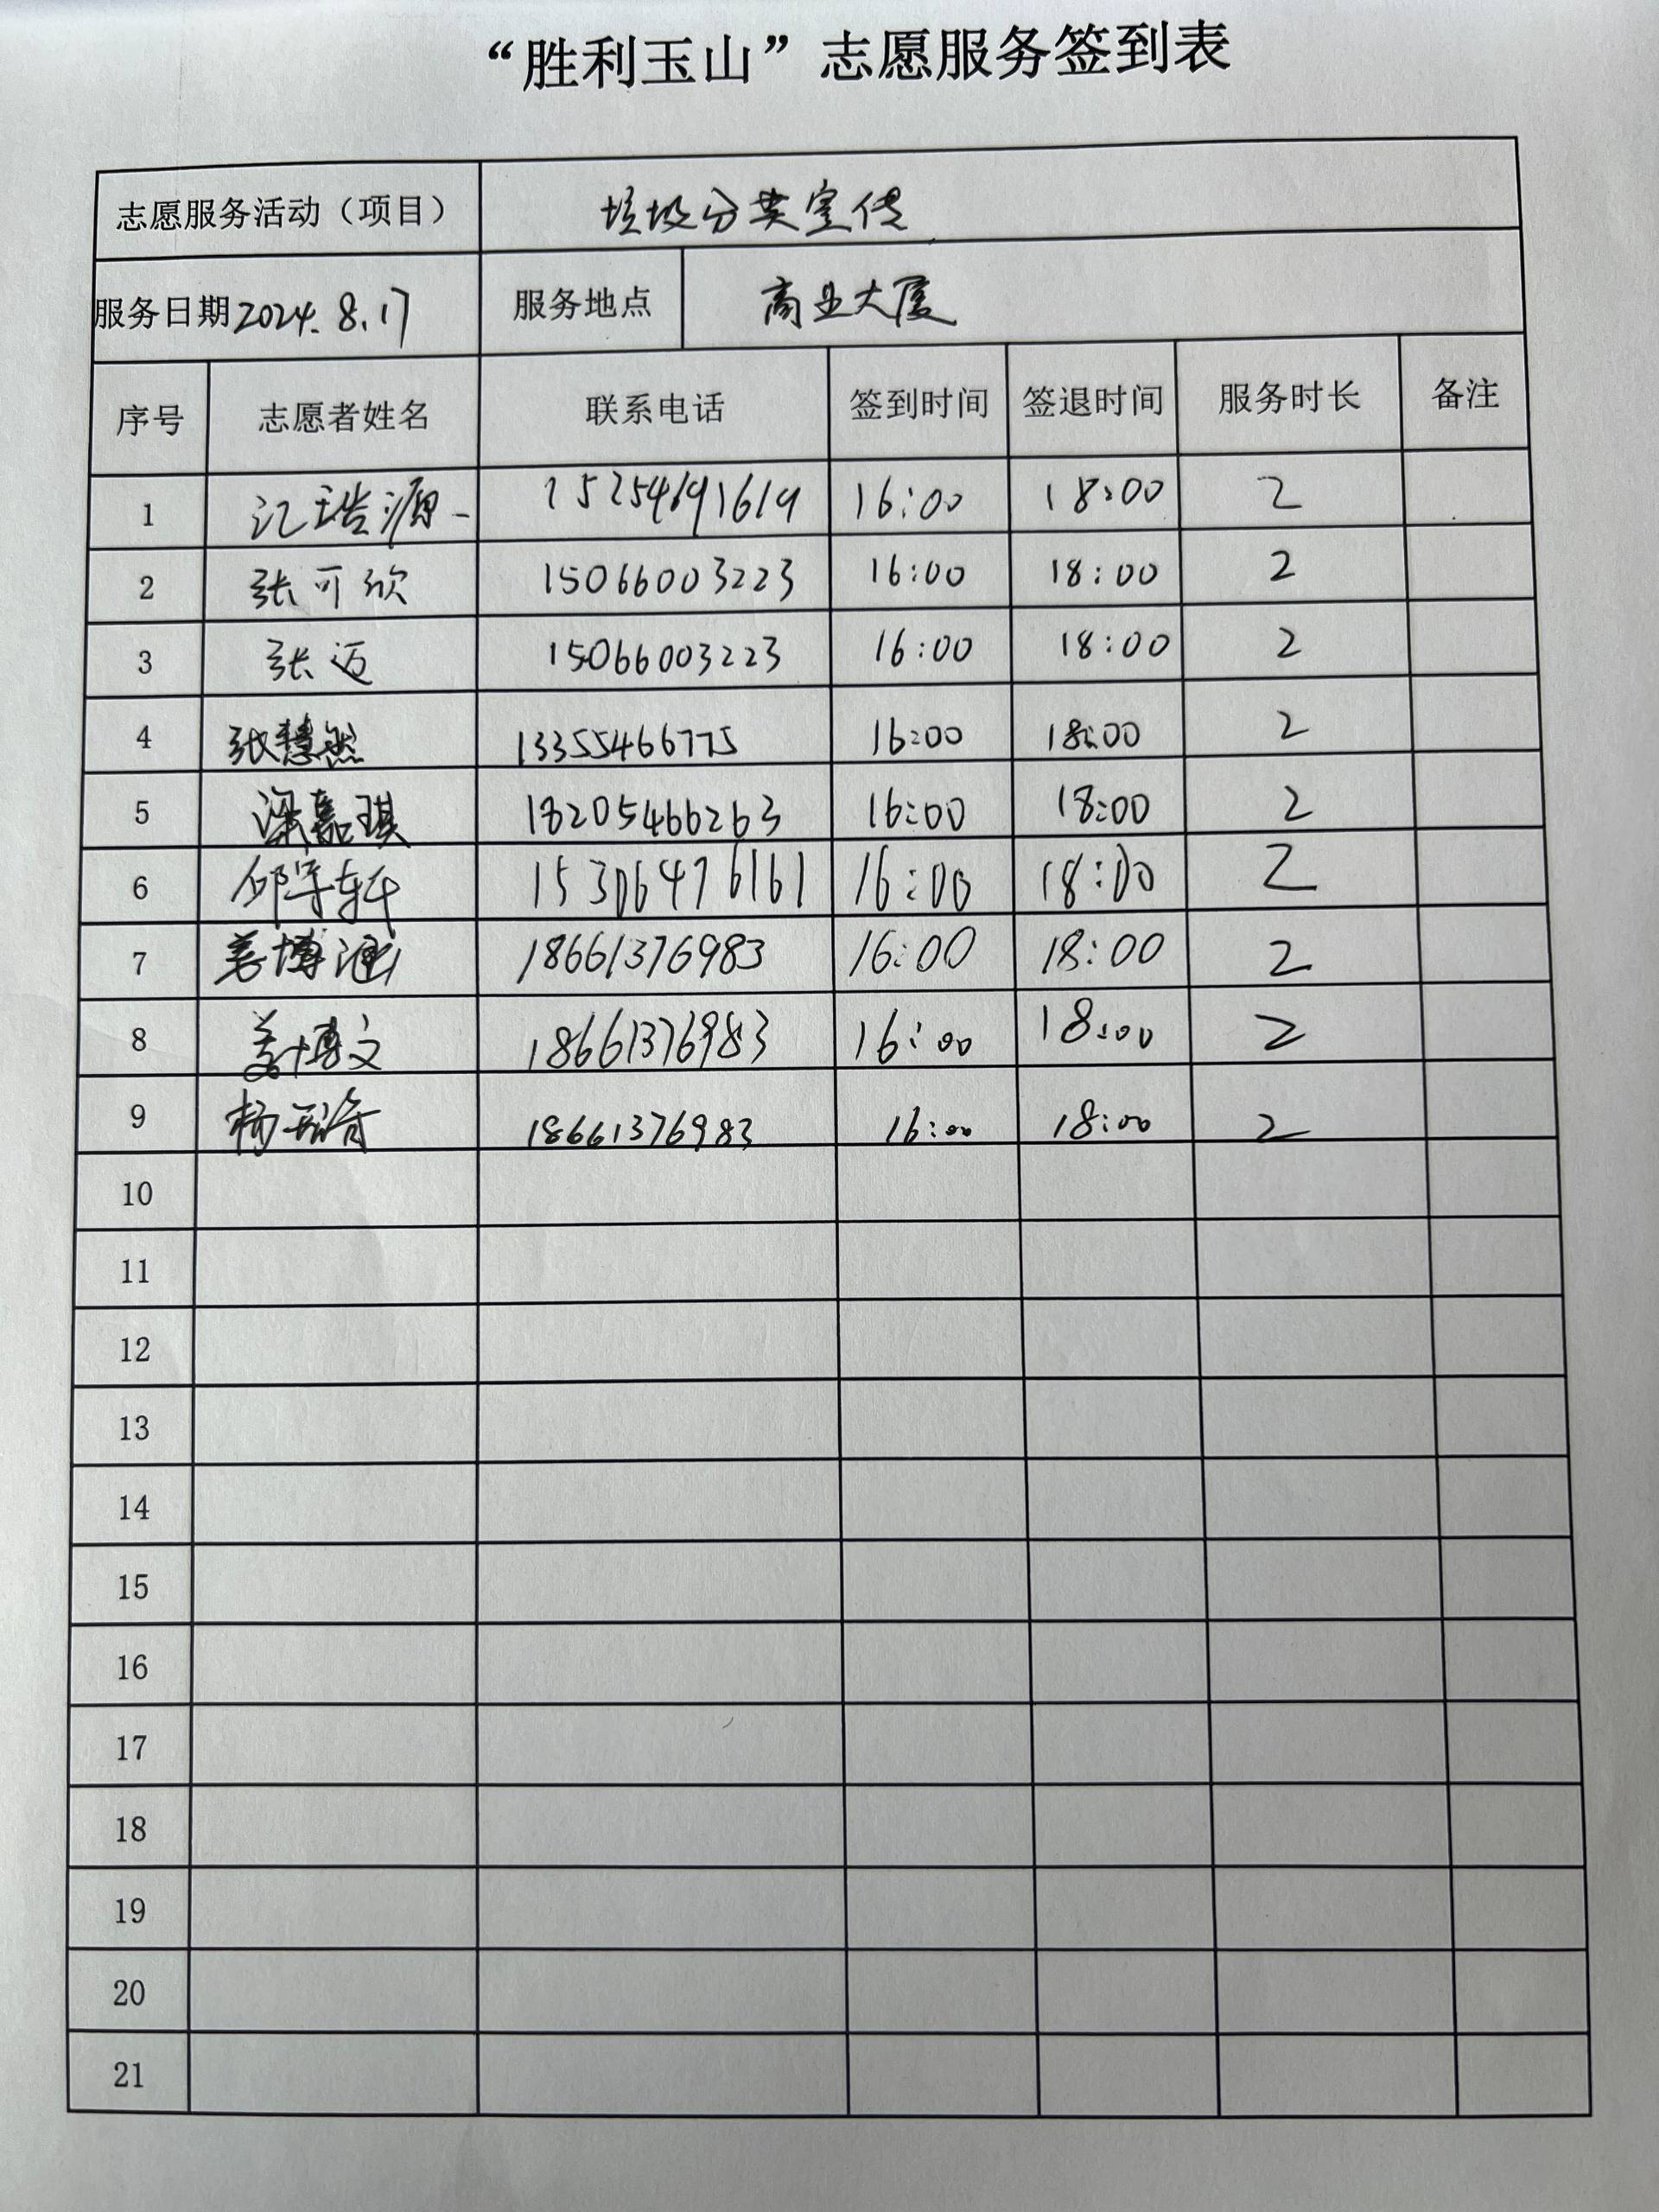 “胜利玉山”志愿服务签到表
志愿服务活动（项目） 垃圾分类宣传
服务日期 2024.8.17 服务地点 商业大厦
序号 志愿者姓名 联系电话 签到时间 签退时间 服务时长 备注
1 15254691619 16:00 18:00 2
2 张可欣 15066003223 16:00 18:00 2
3 张迈 15066003223 16:00 18:00 2
4 张慧然 13355466775 16:00 18:00 2
5 梁嘉琪 18205466263 16:00 18:00 2
6 邱宇轩 15306476161 16:00 18:00 2
7 姜博涵 18661376983 16:00 18:00 2
8 姜博文 18661376983 16:00 18:00 2
9 18661376983 16:00 18:00 2
10
11
12
13
14
15
16
17
18
19
20
21